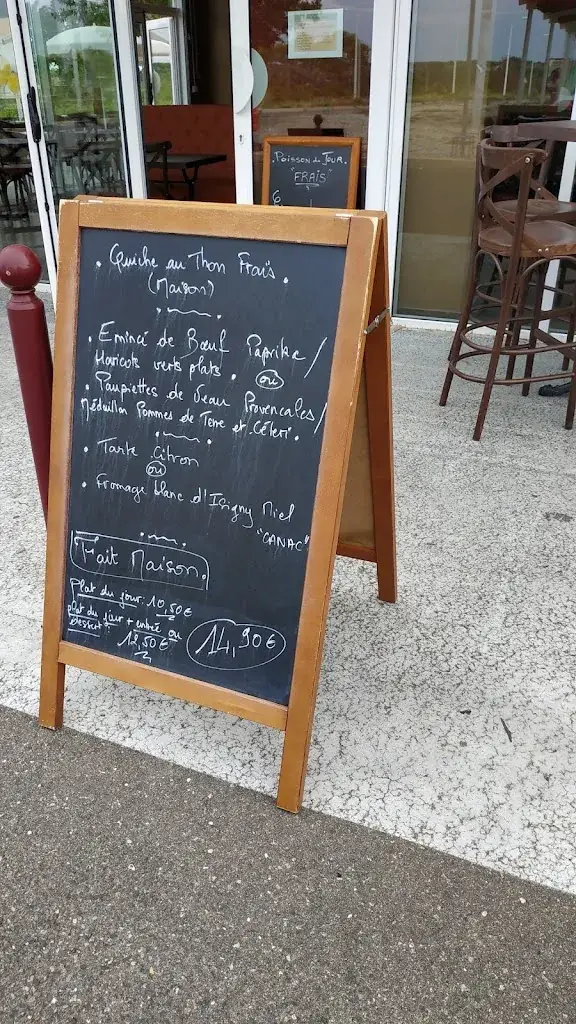 Poisson du Jour
"FRAIS"
• Quiche au Thon Frais •
(Maison)
• Emincé de Bœuf Paprika /
Haricots verts plats. ou
• Paupiettes de Veau Provencales /
Médaillon Pommes de Terre et Céleri.
• Tarte Citron
ou
• Fromage blanc d'Isigny Miel
"CANAC"
Fait Maison.
plat du jour: 10,50€
plat du jour + entrée ou
dessert
12,50€
14,90€